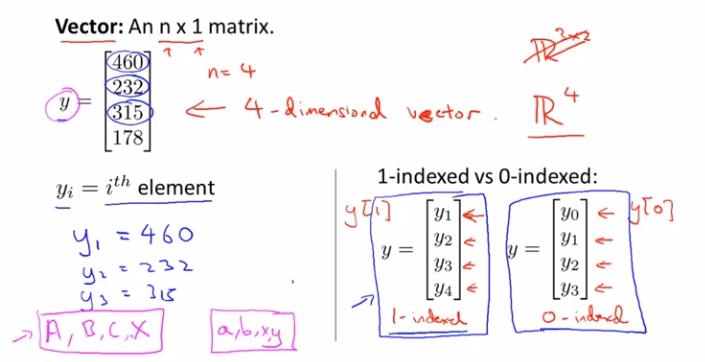 Vector: An n x 1 matrix.
ℝ^{3×2}
n = 4
y = [460
232
315
178]
← 4-dimensional vector.
ℝ^4
y_i = i^{th} element
y_1 = 460
y_2 = 232
y_3 = 315
→ A, B, C, X
a, b, x, y
1-indexed vs 0-indexed:
y[1]
y = [y_1
y_2
y_3
y_4]
1-indexed
y[0]
y = [y_0
y_1
y_2
y_3]
0-indexed